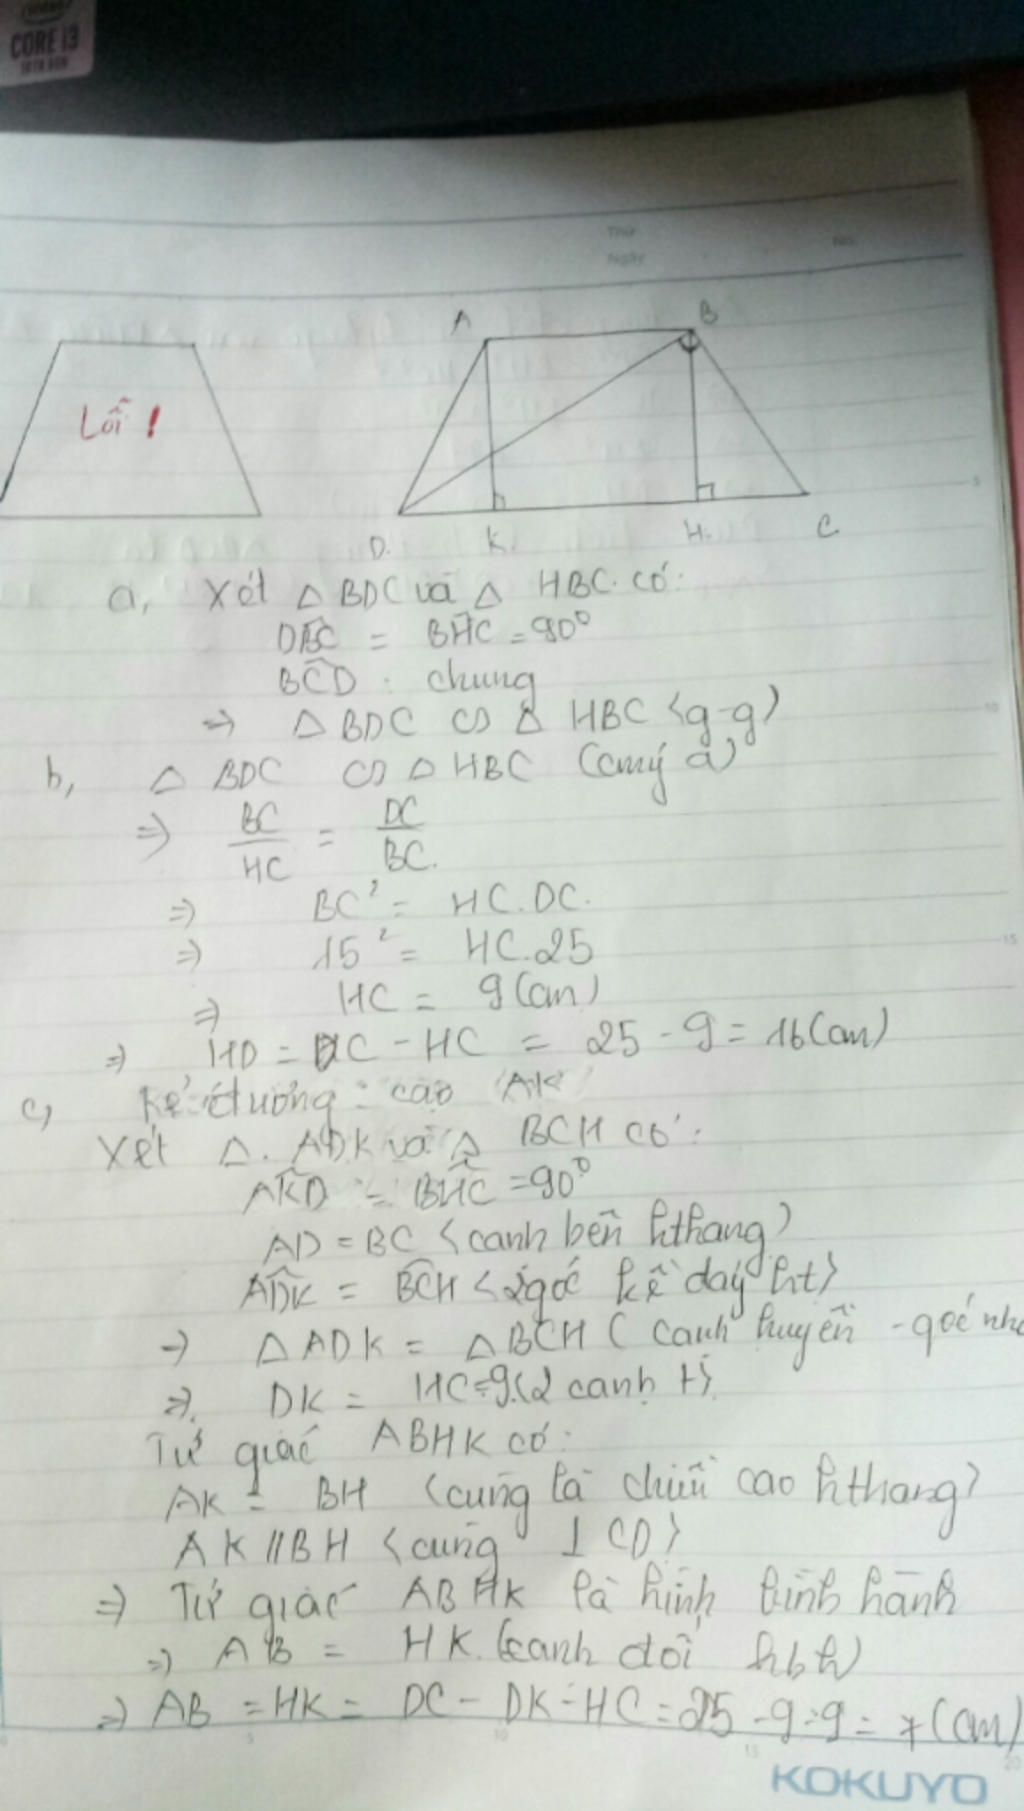 intel
CORE i3
10TH GEN
Thứ
Ngày
No.
Lỗi !
A B
D. K. H. C.
5
a, Xét △ BDC và △ HBC. có:
DBC = BHC = 90°
BCD . chung
⇒ △ BDC ∽ △ HBC <g-g>
10
b, △ BDC ∽ △ HBC (cmý a)
⇒ BC/HC = DC/BC.
⇒ BC² = HC.DC.
⇒ 15² = HC.25
15
⇒ HC = 9(cm)
⇒ HD = DC - HC = 25 - 9 = 16(cm)
c, Kẻ đường cao AK
Xét △. ADK và △ BCH có:
AKD = BHC = 90°
AD = BC <cạnh bên hthang>
ADK = BCH <2góc kề đáy ht>
→ △ ADK = △ BCH ( cạnh huyền - góc nhọ
⇒. DK = HC=9.(2 canh t).
Tứ giác ABHK có:
AK = BH <cùng là chiều cao hthang>
AK // BH <cùng ⊥ CD>
⇒ Tứ giác ABHK là hình bình hành
⇒ AB = HK. (cạnh đối hbh)
⇒ AB = HK = DC - DK - HC = 25 - 9 - 9 = 7 (cm)
5 10 15 20
KOKUYO